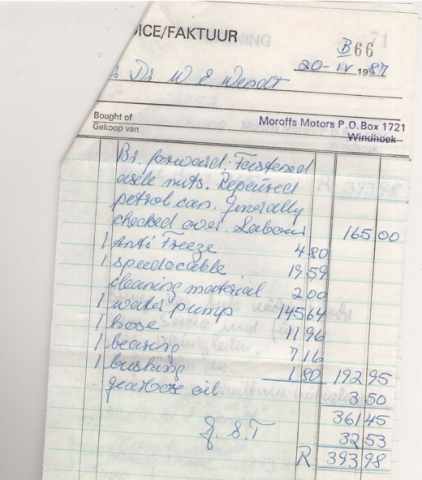 OICE/FAKTUUR
B66
20-IV-1987
Dr W E Wendt
Bought of
Gekoop van
Moroffs Motors P.O. Box 1721
Windhoek
Br. forward. Fastened
axle nuts. Repaired
petrol can. Generally
checked over. Labour 165 00
1 Anti Freeze 4 80
1 speedocable 19,59
cleaning material 2 00
1 water pump 145 64
1 hose 11 96
1 bearing 7 16
1 bushing 1 80 192 95
gearbox oil 3 50
361 45
G. S. T 32 53
R 393 98